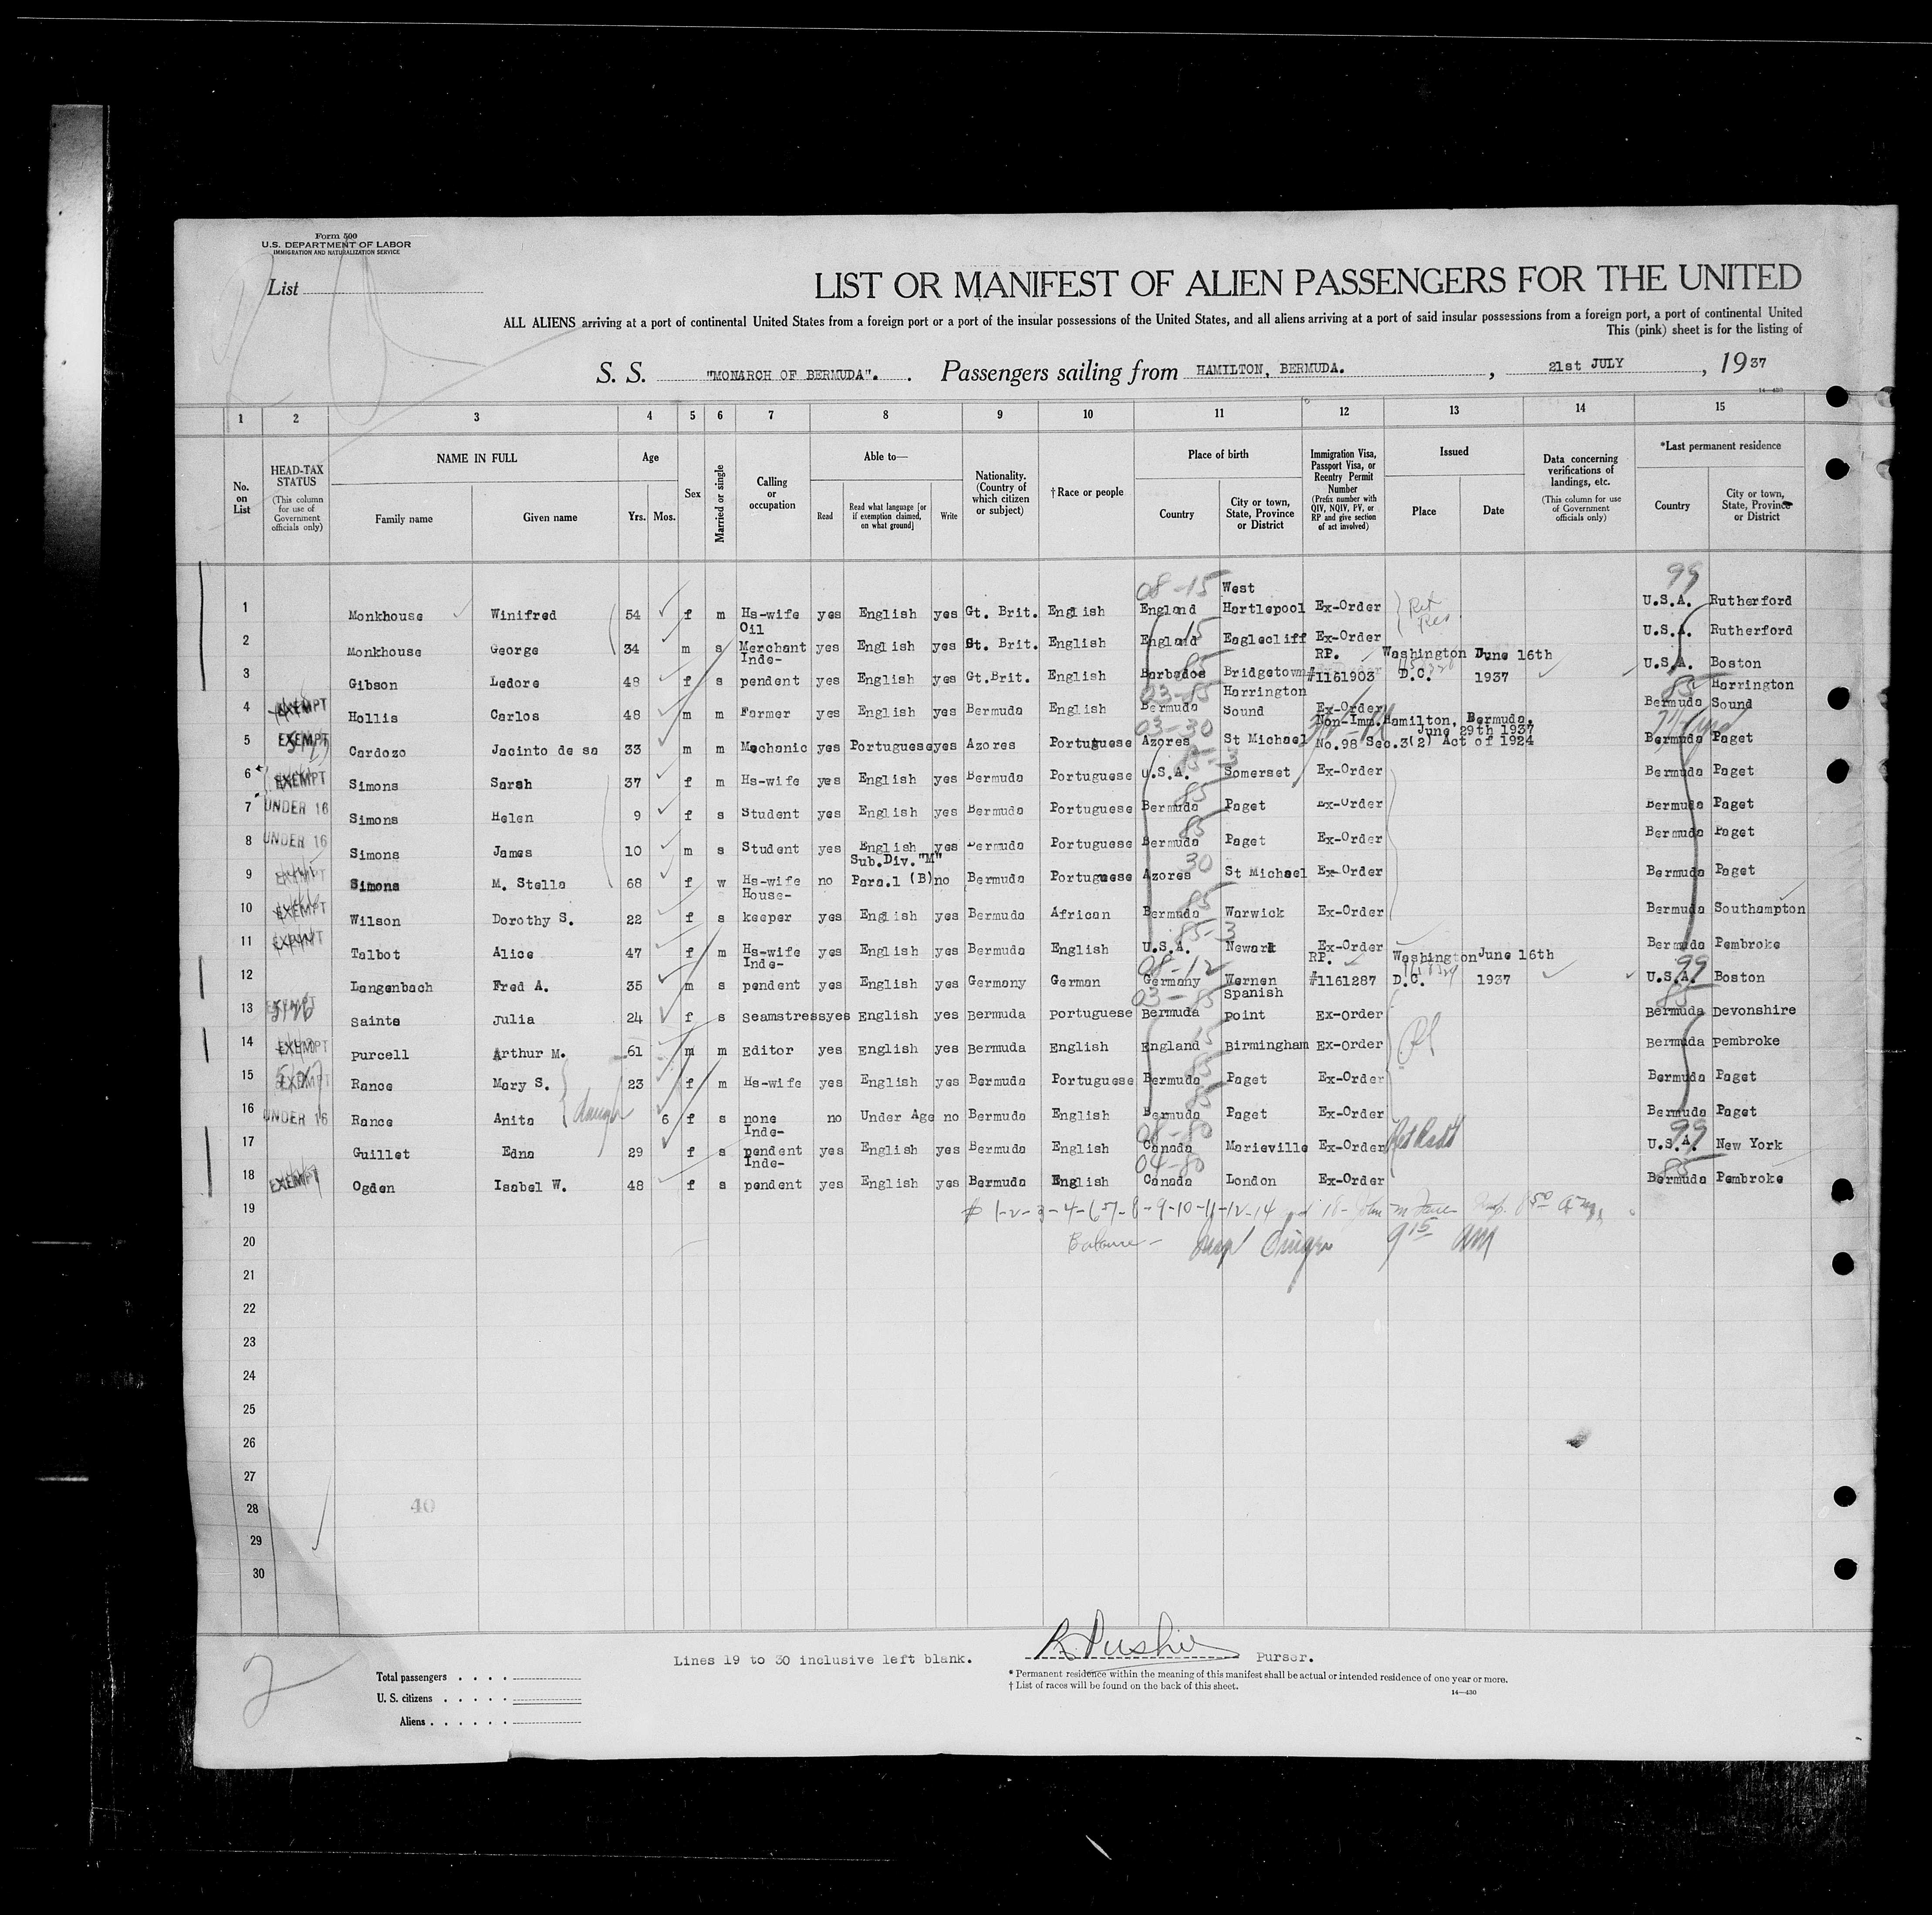 Form 500
U.S. DEPARTMENT OF LABOR
IMMIGRATION AND NATURALIZATION SERVICE
List
LIST OR MANIFEST OF ALIEN PASSENGERS FOR THE UNITED
ALL ALIENS arriving at a port of continental United States from a foreign port or a port of the insular possessions of the United States, and all aliens arriving at a port of said insular possessions from a foreign port, a port of continental United
This (pink) sheet is for the listing of
S. S. "MONARCH OF BERMUDA". Passengers sailing from HAMILTON, BERMUDA. , 21st JULY , 1937
14—430
1 2 3 4 5 6 7 8 9 10 11 12 13 14 15
No. on List
HEAD-TAX STATUS (This column for use of Government officials only)
NAME IN FULL Family name Given name
Age Yrs. Mos.
Sex
Married or single
Calling or occupation
Able to— Read Read what language [or if exemption claimed, on what ground] Write
Nationality. (Country of which citizen or subject)
†Race or people
Place of birth Country City or town, State, Province or District
Immigration Visa, Passport Visa, or Reentry Permit Number (Prefix number with QIV, NQIV, PV, or RP and give section of act involved)
Issued Place Date
Data concerning verifications of landings, etc. (This column for use of Government officials only)
*Last permanent residence Country City or town, State, Province or District
1 Monkhouse Winifred 54 f m Hs-wife yes English yes Gt. Brit. English 08-15 England West Hartlepool Ex-Order 99 U.S.A. Rutherford
2 Monkhouse George 34 m s Oil Merchant yes English yes Gt. Brit. English 15 England Eaglecliff Ex-Order U.S.A. Rutherford
3 Gibson Ledore 48 f s Inde-pendent yes English yes Gt.Brit. English 85 Barbados Bridgetown RP. #1161903 Washington D.C. June 16th 1937 U.S.A. Boston
4 EXEMPT Hollis Carlos 48 m m Farmer yes English yes Bermuda English 03-85 Bermuda Harrington Sound Ex-Order 85 Bermuda Harrington Sound
5 EXEMPT Cardozo Jacinto de sa 33 m m Mechanic yes Portuguese yes Azores Portuguese 03-30 Azores St Michael Non-Imm. No.98 Sec.3(2) Act of 1924 Hamilton, Bermuda, June 29th 1937 Bermuda Paget
6 EXEMPT Simons Sarah 37 f m Hs-wife yes English yes Bermuda Portuguese 85-3 U.S.A. Somerset Ex-Order Bermuda Paget
7 UNDER 16 Simons Helen 9 f s Student yes English yes Bermuda Portuguese 85 Bermuda Paget Ex-Order Bermuda Paget
8 UNDER 16 Simons James 10 m s Student yes English yes Bermuda Portuguese 85 Bermuda Paget Ex-Order Bermuda Paget
9 EXEMPT Simons M. Stella 68 f w Hs-wife no Sub.Div."M" Para.1 (B) no Bermuda Portuguese 30 Azores St Michael Ex-Order Bermuda Paget
10 EXEMPT Wilson Dorothy S. 22 f s House-keeper yes English yes Bermuda African 85 Bermuda Warwick Ex-Order Bermuda Southampton
11 EXEMPT Talbot Alice 47 f m Hs-wife yes English yes Bermuda English 85-3 U.S.A. Newark Ex-Order Bermuda Pembroke
12 Langenbach Fred A. 35 m s Inde-pendent yes English yes Germany German 08-12 Germany Wernen RP. #1161287 Washington D.C. June 16th 1937 99 U.S.A. Boston
13 EXEMPT Saints Julia 24 f s Seamstress yes English yes Bermuda Portuguese 03-85 Bermuda Spanish Point Ex-Order 85 Bermuda Devonshire
14 EXEMPT Purcell Arthur M. 61 m m Editor yes English yes Bermuda English 15 England Birmingham Ex-Order Bermuda Pembroke
15 EXEMPT Rance Mary S. 23 f m Hs-wife yes English yes Bermuda Portuguese 85 Bermuda Paget Ex-Order Bermuda Paget
16 UNDER 16 Rance Anita 6 f s none no Under Age no Bermuda English 85 Bermuda Paget Ex-Order Bermuda Paget
17 Guillet Edna 29 f s Inde-pendent yes English yes Bermuda English 08-80 Canada Marieville Ex-Order 99 U.S.A. New York
18 EXEMPT Ogden Isabel W. 48 f s Inde-pendent yes English yes Bermuda English 04-80 Canada London Ex-Order 85 Bermuda Pembroke
19
20 Balance 9 15 AM
21
22
23
24
25
26
27
28 40
29
30
2
Lines 19 to 30 inclusive left blank.
Purser.
Total passengers
U. S. citizens
Aliens
* Permanent residence within the meaning of this manifest shall be actual or intended residence of one year or more.
† List of races will be found on the back of this sheet.
14—430